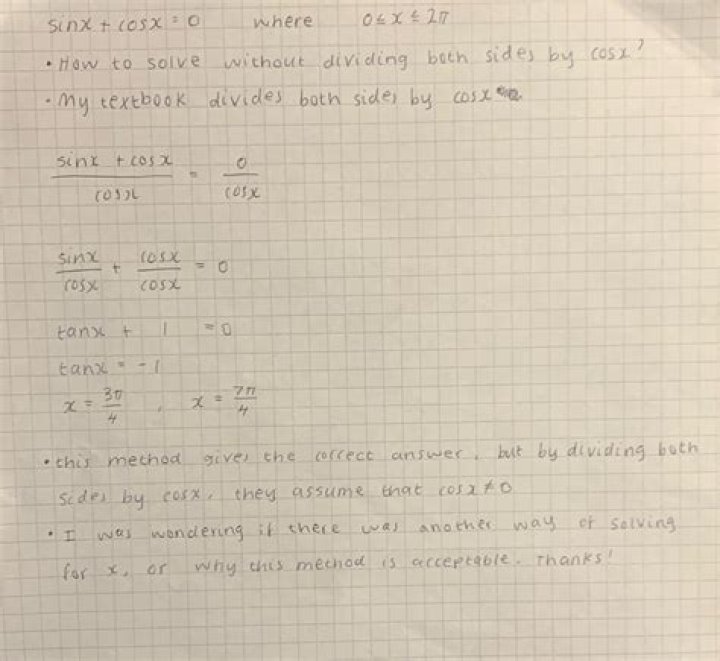 sinx + cosx = 0 where 0 ≤ x ≤ 2π
• How to solve without dividing both sides by cosx?
• My textbook divides both sides by cosx
sinx + cosx / cosx = 0 / cosx
sinx / cosx + cosx / cosx = 0
tanx + 1 = 0
tanx = -1
x = 3π / 4 , x = 7π / 4
• this method gives the correct answer, but by dividing both
sides by cosx, they assume that cosx ≠ 0
• I was wondering if there was another way of solving
for x, or why this method is acceptable. Thanks!